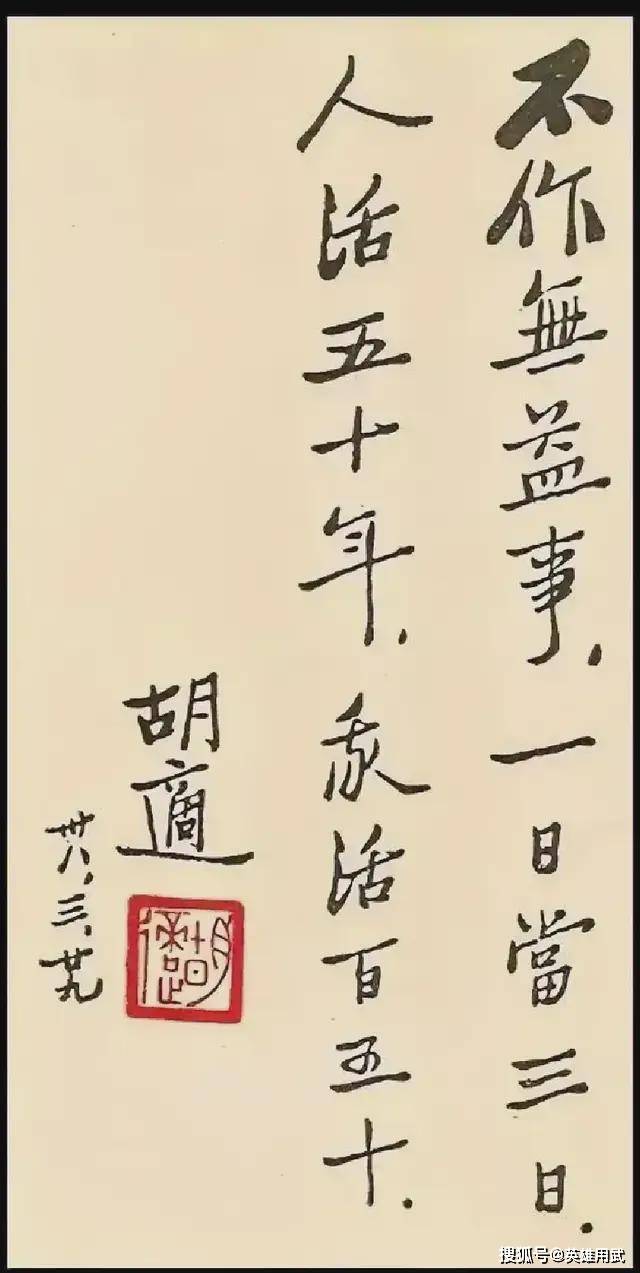 不作無益事，一日當三日．
人活五十年，我活百五十．
胡適
卅八．三．廿九
胡適
搜狐号@英雄用武